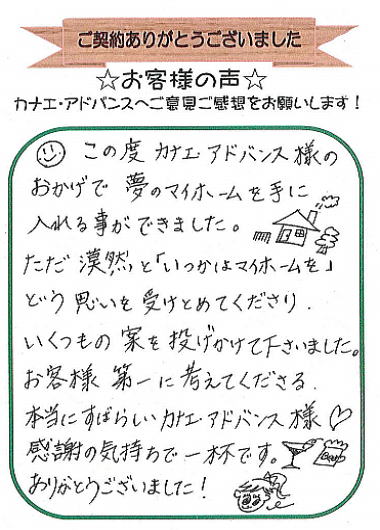 ご契約ありがとうございました
☆お客様の声☆
カナエ・アドバンスへご意見ご感想をお願いします！
この度 カナエ・アドバンス様の
おかげで 夢のマイホームを手に
入れる事ができました。
ただ 漠然と「いつかはマイホームを」
どう 思いを 受けとめてくださり、
いくつもの 案を投げかけて下さいました。
お客様 第一に 考えてくださる、
本当にすばらしい カナエ・アドバンス様♡
感謝の気持ちで 一杯です。
ありがとうございました！